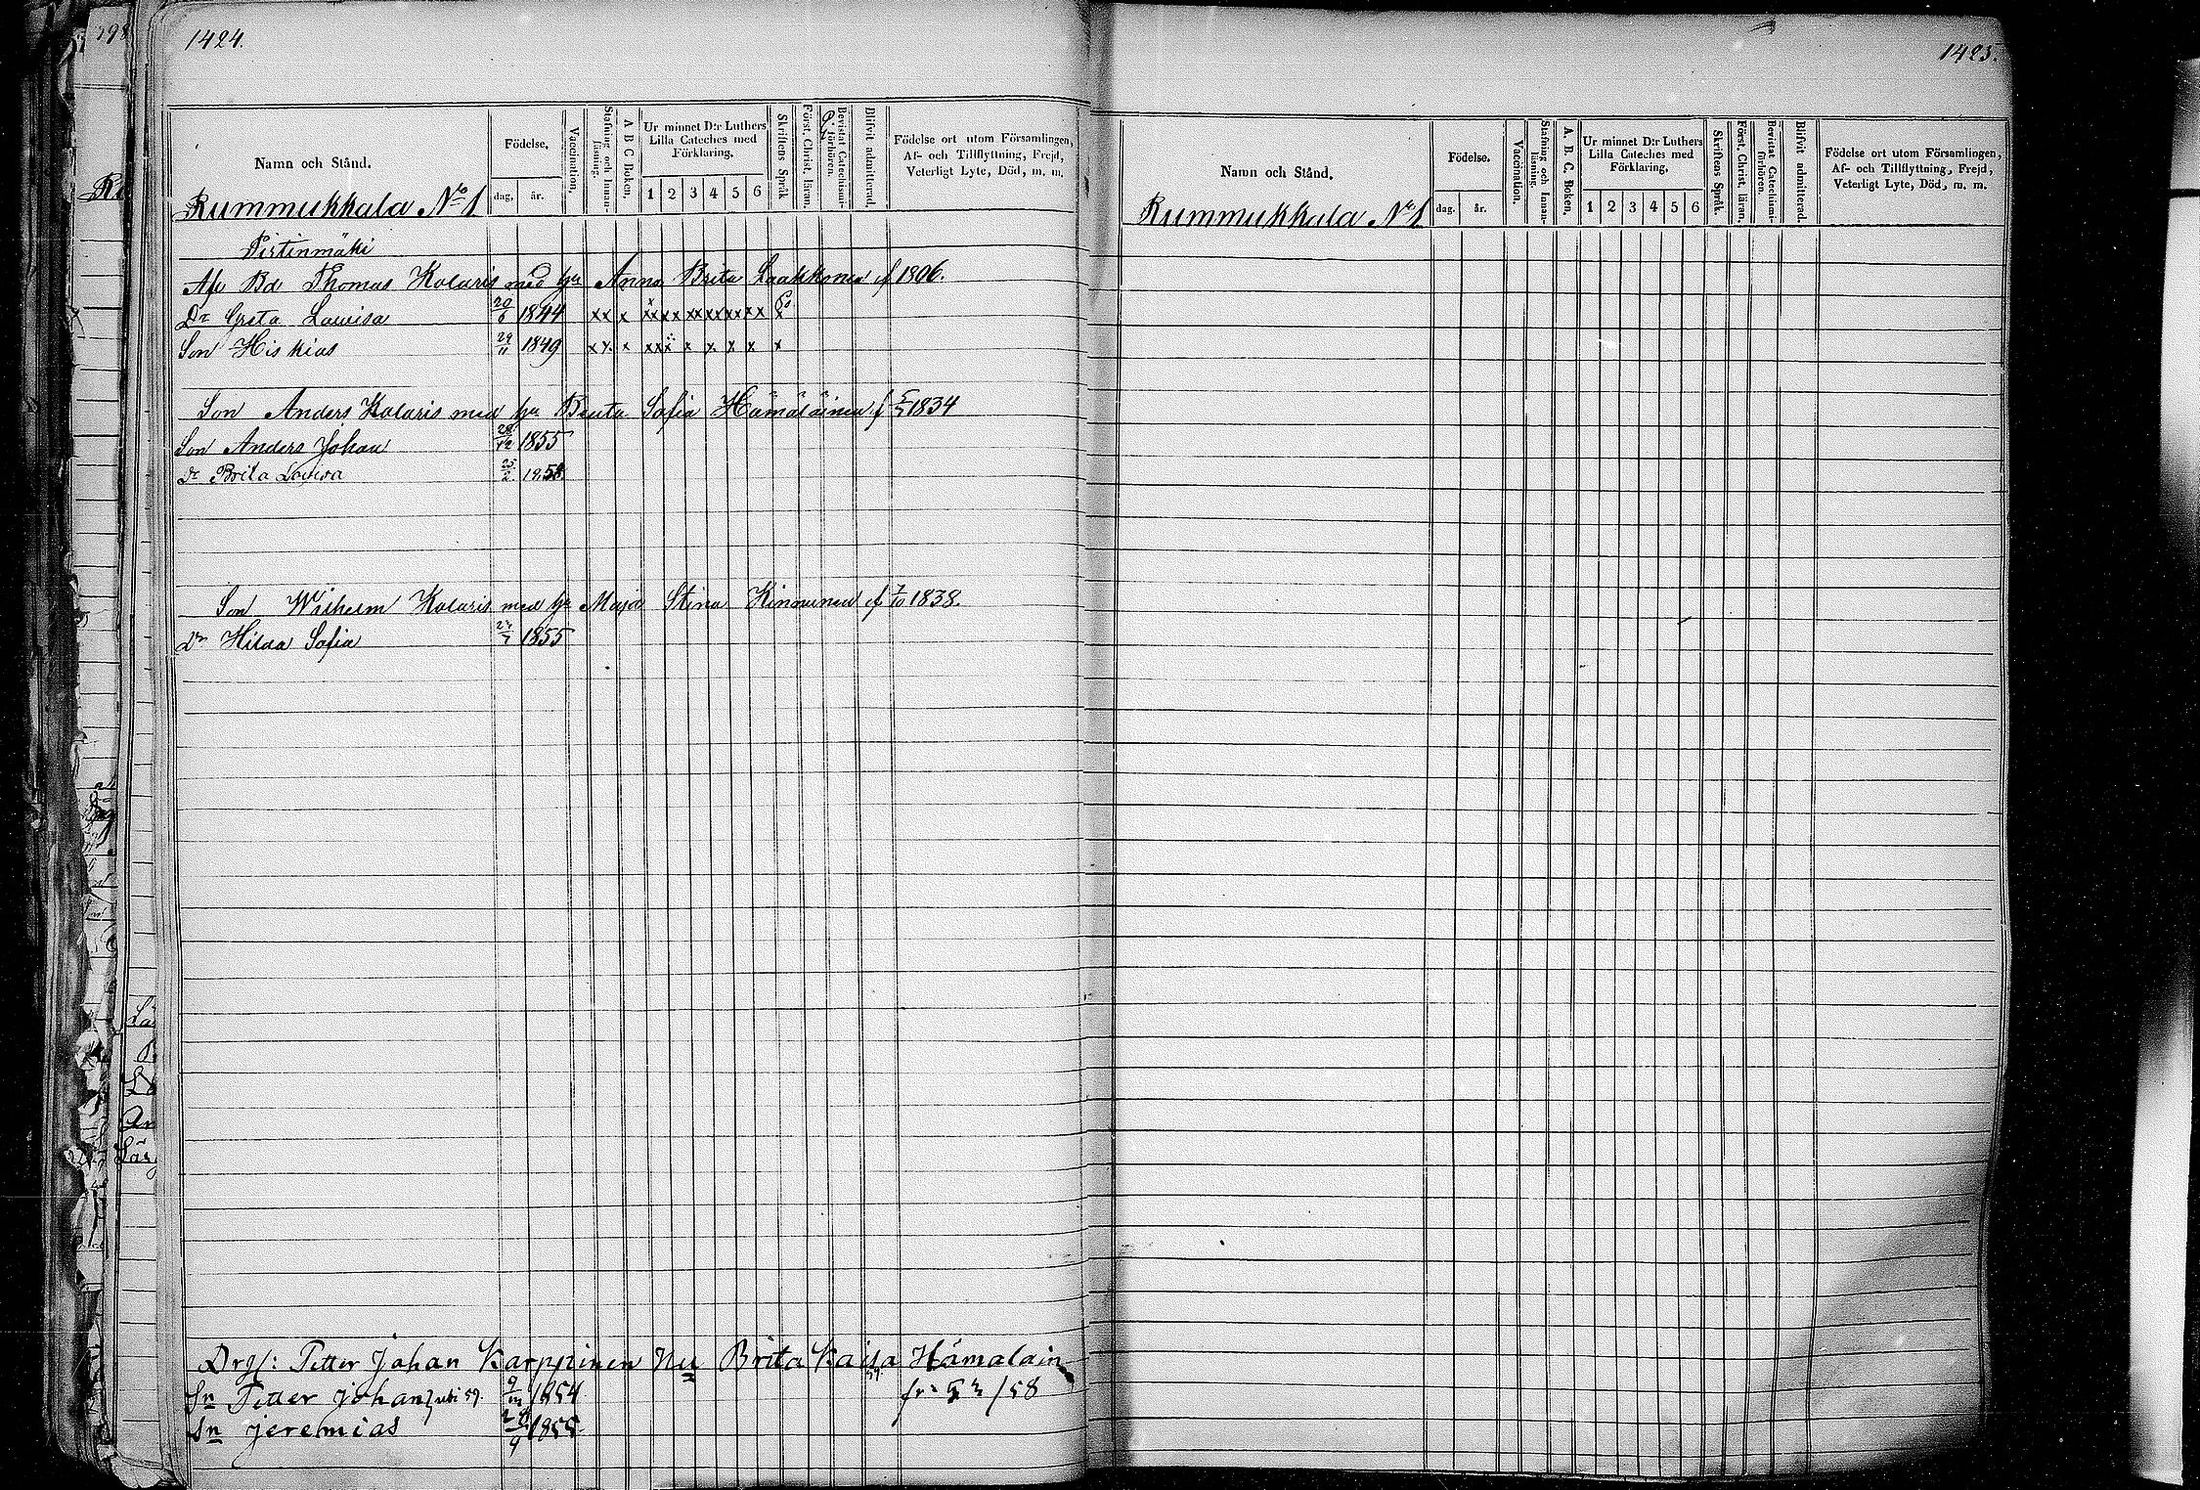 1424.
Namn och Stånd.
Födelse,
dag, år.
Vaccination,
Stafning och Innan-
läsning.
A B C Boken,
Ur minnet D:r Luthers
Lilla Cateches med
Förklaring,
1 2 3 4 5 6
Skriftens Språk
Först. Christ. läran.
Bevistat Catechismi-
förhören.
Blifvit admitterad.
Födelse ort utom Församlingen,
Af- och Tillflyttning, Frejd,
Veterligt Lyte, Död, m. m.
Rummukkala No 1
Pirtinmäki
Afl Bd Thomas Kolaris med hu Anna Brita Laakkonen f 1806.
Dr Greta Lovisa 20/6 1844 x x x
Son Hiskias 29/11 1849 x x x
Son Anders Kolaris med hu Beata Sofia Hämäläinen f 5/5 1834
Son Anders Johan 28/12 1855
Dr Brita Lovisa 25/2 1858.
Son Wilhelm Kolaris med hu Maja Stina Kinnunen f 7/10 1838.
Dr Hilda Sofia 1855
Drg/: Petter Johan Karppinen Hu Brita Kaisa Hämäläin
59.
Sn Petter Johan } 59. 1854 /58
Sn jeremias 1855
1425.
Namn och Stånd.
Födelse.
dag. år.
Vaccination.
Stafning och Innan-
läsning.
A. B. C. Boken,
Ur minnet D:r Luthers
Lilla Cateches med
Förklaring,
1 2 3 4 5 6
Skriftens Språk.
Först. Christ. läran.
Bevistat Catechismi-
förhören.
Blifvit admitterad.
Födelse ort utom Församlingen,
Af- och Tillflyttning, Frejd,
Veterligt Lyte, Död, m. m.
Rummukkala No 1